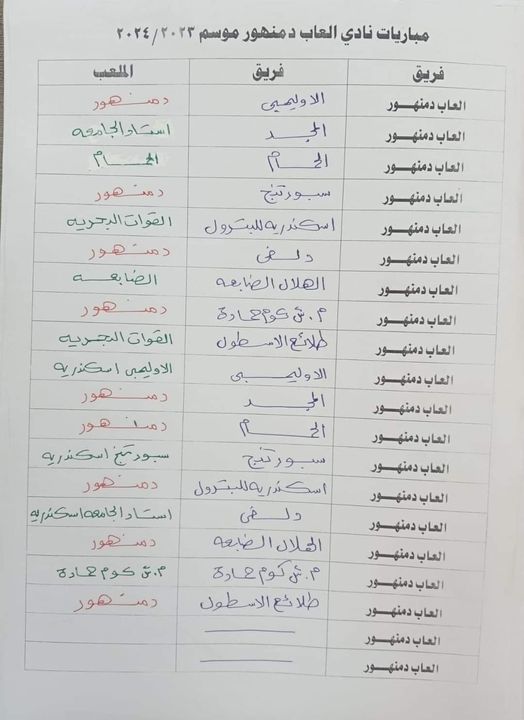 مباريات نادي العاب دمنهور موسم ٢٠٢٣/ ٢٠٢٤
فريق فريق الملعب
العاب دمنهور الاوليمبى دمنهور
العاب دمنهور المجد استاد الجامعه
العاب دمنهور الحمام الحمام
العاب دمنهور سبورتنج دمنهور
العاب دمنهور اسكندريه للبترول القوات البحريه
العاب دمنهور دلفى دمنهور
العاب دمنهور الهلال الضابعه الضابعه
العاب دمنهور م.ش كوم حمادة دمنهور
العاب دمنهور طلائع الاسطول القوات البحريه
العاب دمنهور الاوليمبى الاوليمبى اسكندريه
العاب دمنهور المجد دمنهور
العاب دمنهور الحمام دمنهور
العاب دمنهور سبورتنج سبورتنج اسكندريه
العاب دمنهور اسكندريه للبترول دمنهور
العاب دمنهور دلفى استاد الجامعه اسكندريه
العاب دمنهور الهلال الضبعه دمنهور
العاب دمنهور م.ش كوم حمادة م.ش كوم حمادة
العاب دمنهور طلائع الاسطول دمنهور
العاب دمنهور
العاب دمنهور